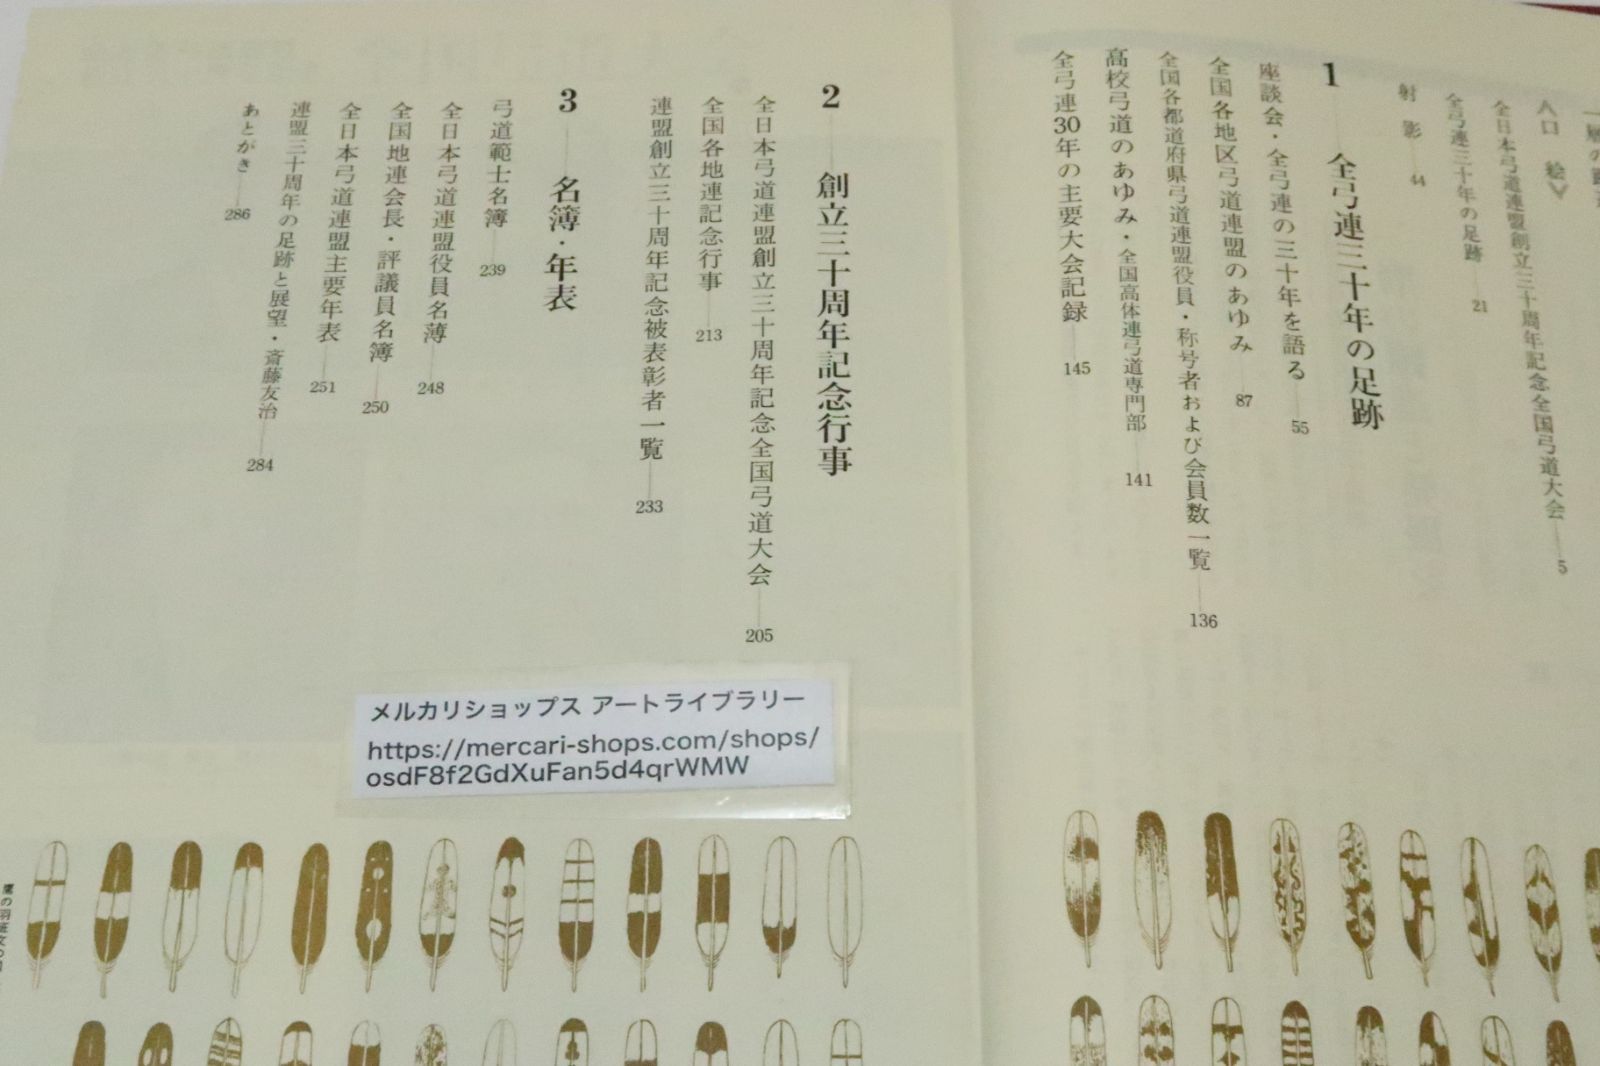 〈口 絵〉
全日本弓道連盟創立三十周年記念全国弓道大会 5
全弓連三十年の足跡 21
射 影 44
1 全弓連三十年の足跡
座談会・全弓連の三十年を語る 55
全国各地区弓道連盟のあゆみ 87
全国各都道府県弓道連盟役員・称号者および会員数一覧 136
高校弓道のあゆみ・全国高体連弓道専門部 141
全弓連30年の主要大会記録 145
2 創立三十周年記念行事
全日本弓道連盟創立三十周年記念全国弓道大会 205
全国各地連記念行事 213
連盟創立三十周年記念被表彰者一覧 233
3 名簿・年表
弓道範士名簿 239
全日本弓道連盟役員名薄 248
全国地連会長・評議員名簿 250
全日本弓道連盟主要年表 251
連盟三十周年の足跡と展望・斎藤友治 284
あとがき 286
メルカリショップス アートライブラリー
https://mercari-shops.com/shops/
osdF8f2GdXuFan5d4qrWMW
鷹の羽斑文の